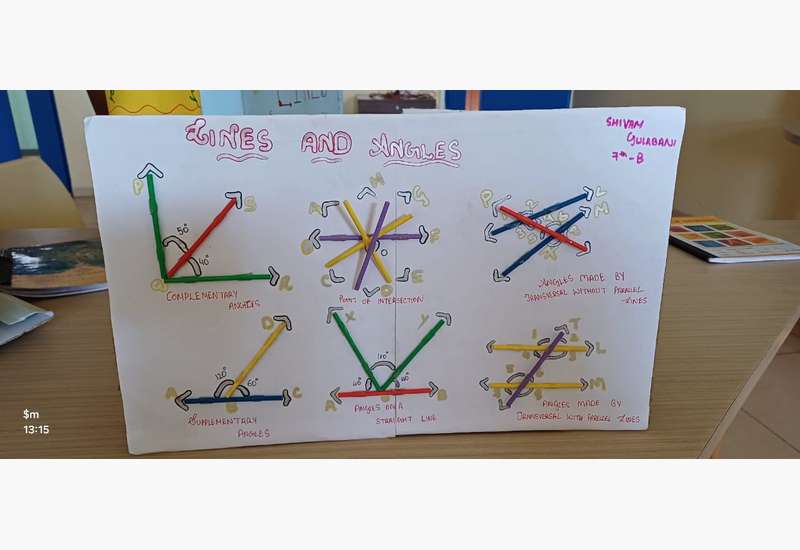 LINES AND ANGLES
SHIVAM
GULABANI
7th-B
P
S
50°
40°
Q
R
COMPLEMENTARY
ANGLES
H
A
G
B
F
O
C
D
E
POINT OF INTERSECTION
P
L
M
ANGLES MADE BY
TRANSVERSAL WITHOUT PARALLEL
-LINES
D
120°
60°
A
B
C
SUPPLEMENTARY
ANGLES
X
Y
100°
40°
40°
A
B
ANGLES ON A
STRAIGHT LINE
T
L
M
ANGLES MADE BY
TRANSVERSAL WITH PARALLEL LINES
$m
13:15